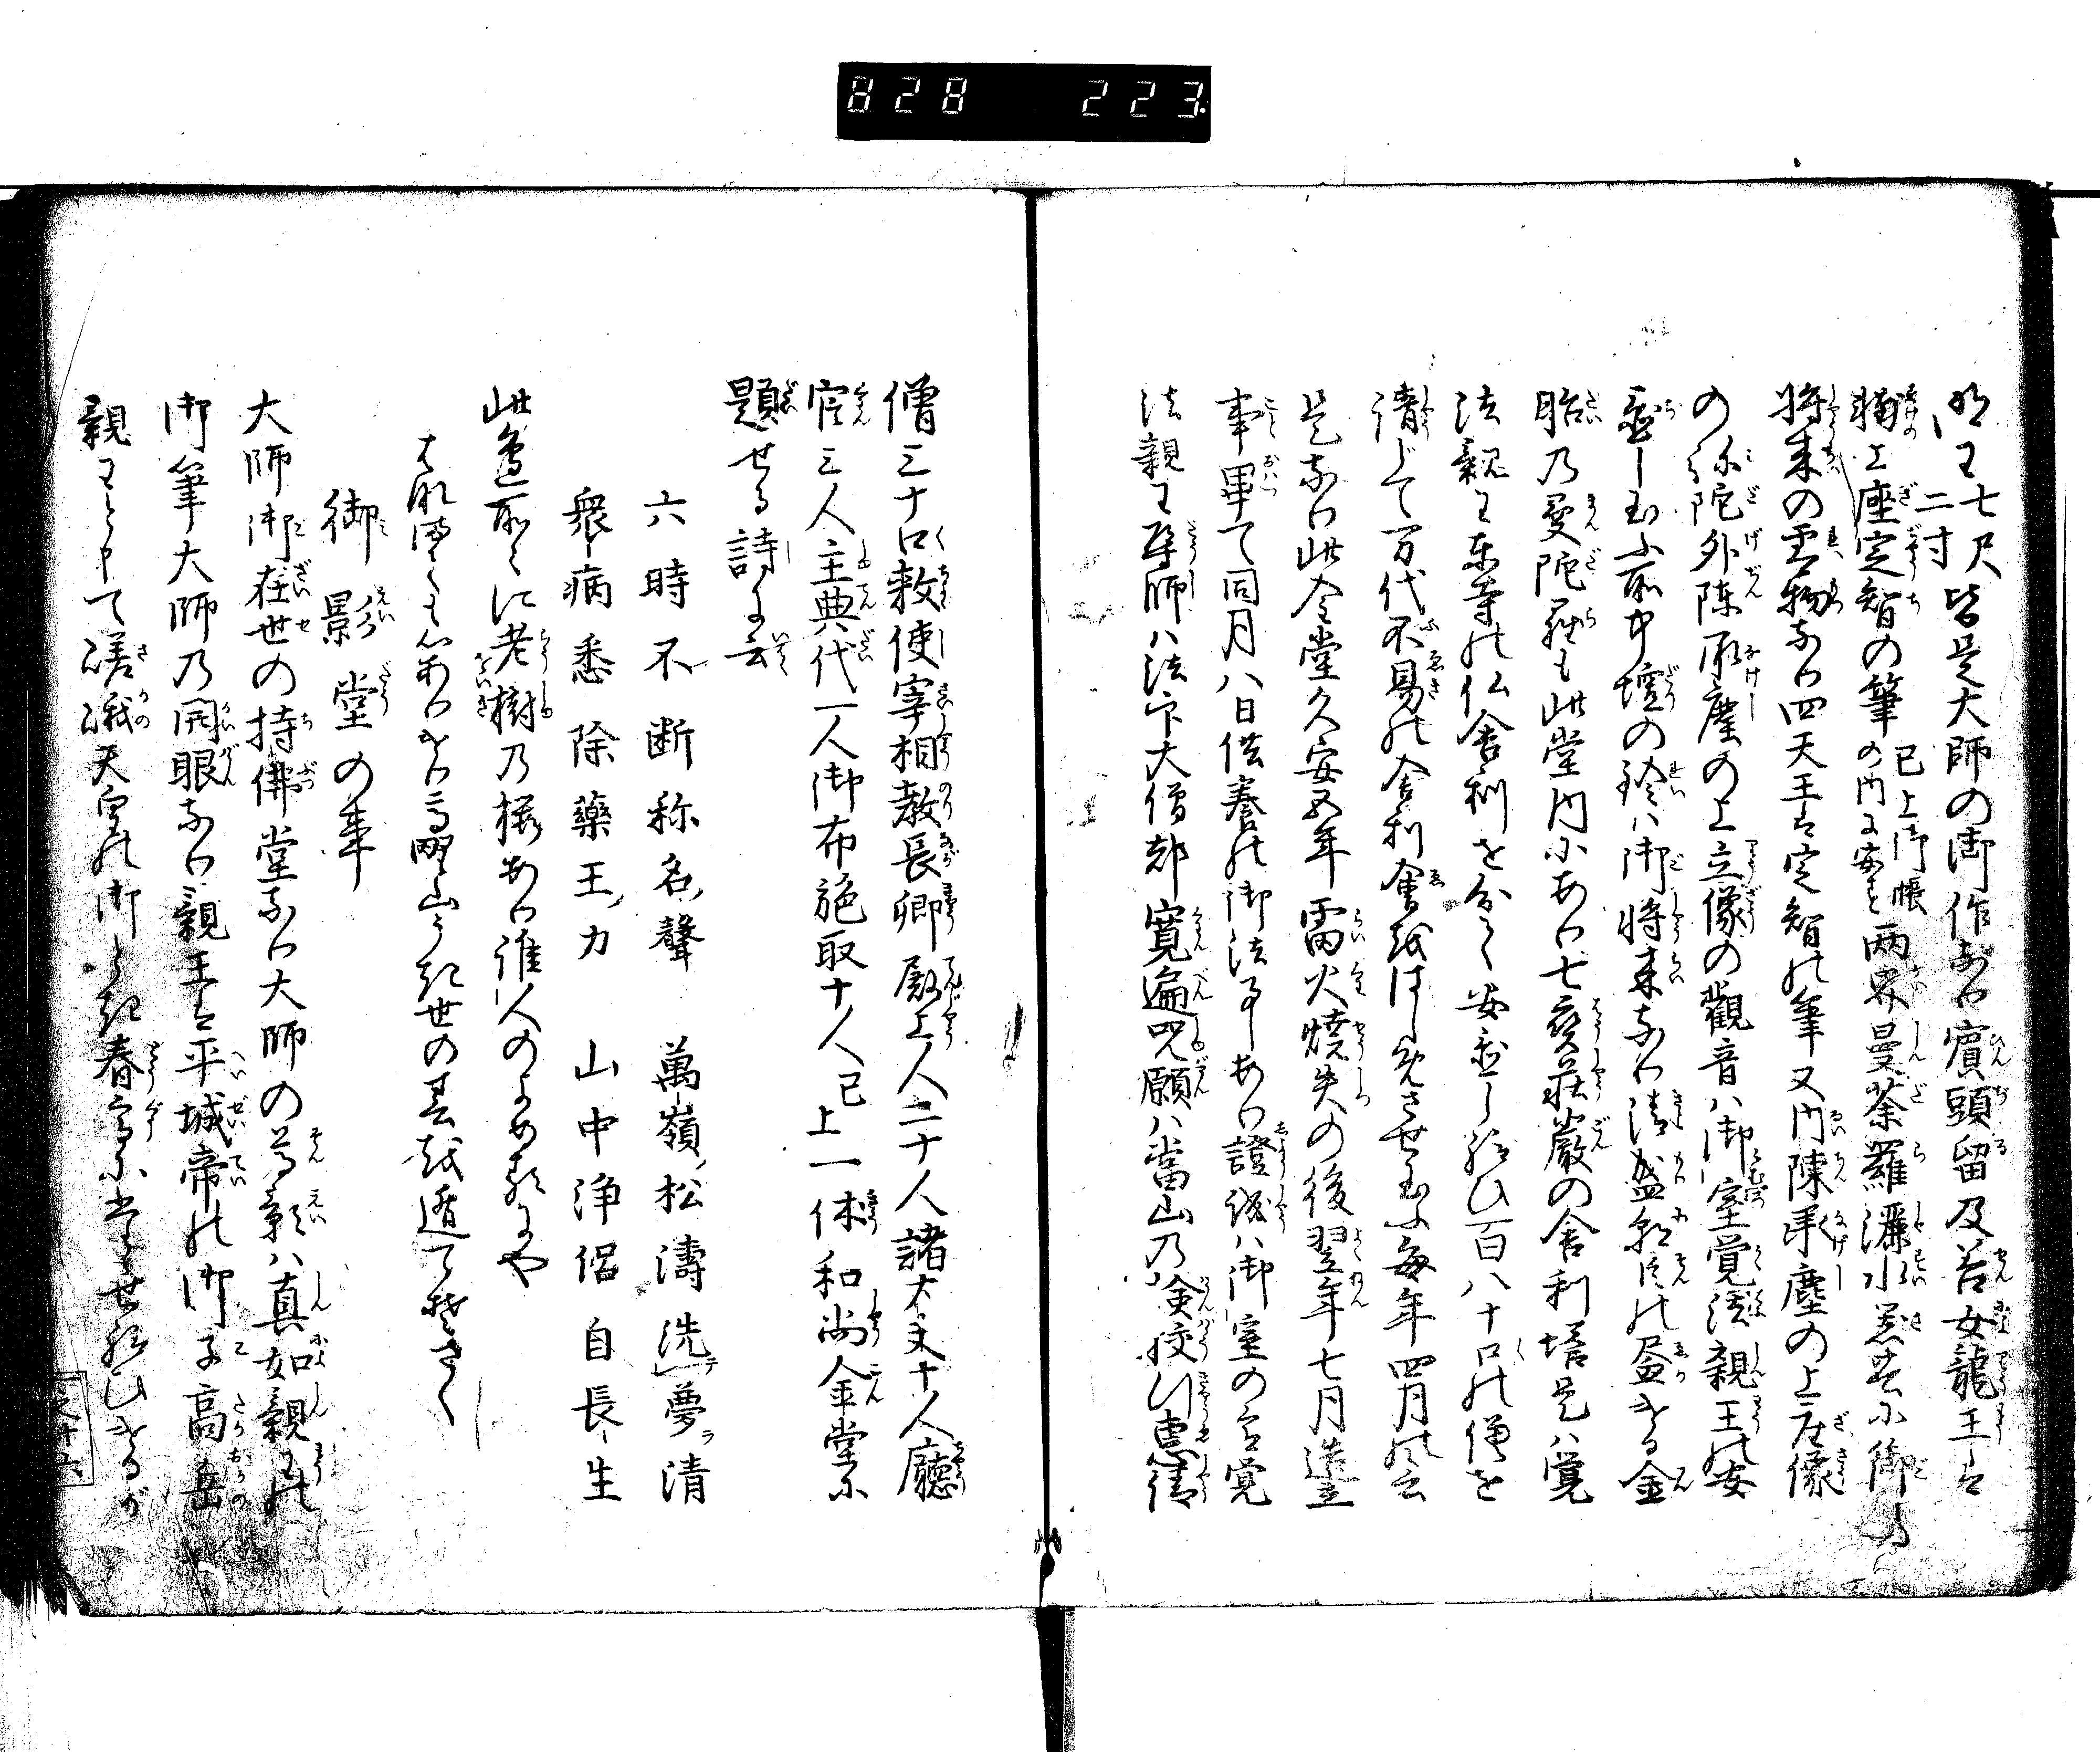 828 223
明王七尺二寸皆是大師の御作なり賓頭留及善女龍王は
補上座定智の筆已上御帳の内に安す両界曼荼羅灑水器共に御
将来の霊物なり四天王は定智の筆又内陳承塵の上座像
の弥陀外陳承塵の上立像の観音ハ御室覚法親王の安
置し玉ふ所中壇の鈴ハ御将来なり清盛朝臣の
胎乃曼陀羅も此堂内にあり七寳荘厳の舎利塔是ハ覚
法親王東寺の仏舎利を分て安置し給ひ百八十口の僧を
請じて万代不易の舎利會をはじめさせ玉ふ毎年四月
是なり此金堂久安五年雷火焼失の後翌年七月造立
事畢て同月八日供養の御法事あり證誠ハ御室の宮覚
法親王導師ハ法印大僧都寛遍呪願ハ當山乃検校行恵
僧三十口敕使宰相教長卿殿上人二十人諸大夫十人廳
官三人主典代一人御布施取十人已上一休和尚金堂に
題せる詩に云
六時不断称名聲 萬嶺松濤洗テ夢ラ清
衆病悉除藥王力 山中浄侶自長生
此邉所々に老樹乃桜あり誰人のよめるにや
高野山うき世の春を遁てぞさく
御影堂の事
大師御在世の持佛堂なり大師の尊影ハ真如親王の
御筆大師乃開眼なり親王は平城帝の御子高岳
親王と申て嵯峨天皇の御とき春宮に立せ給ひけるが